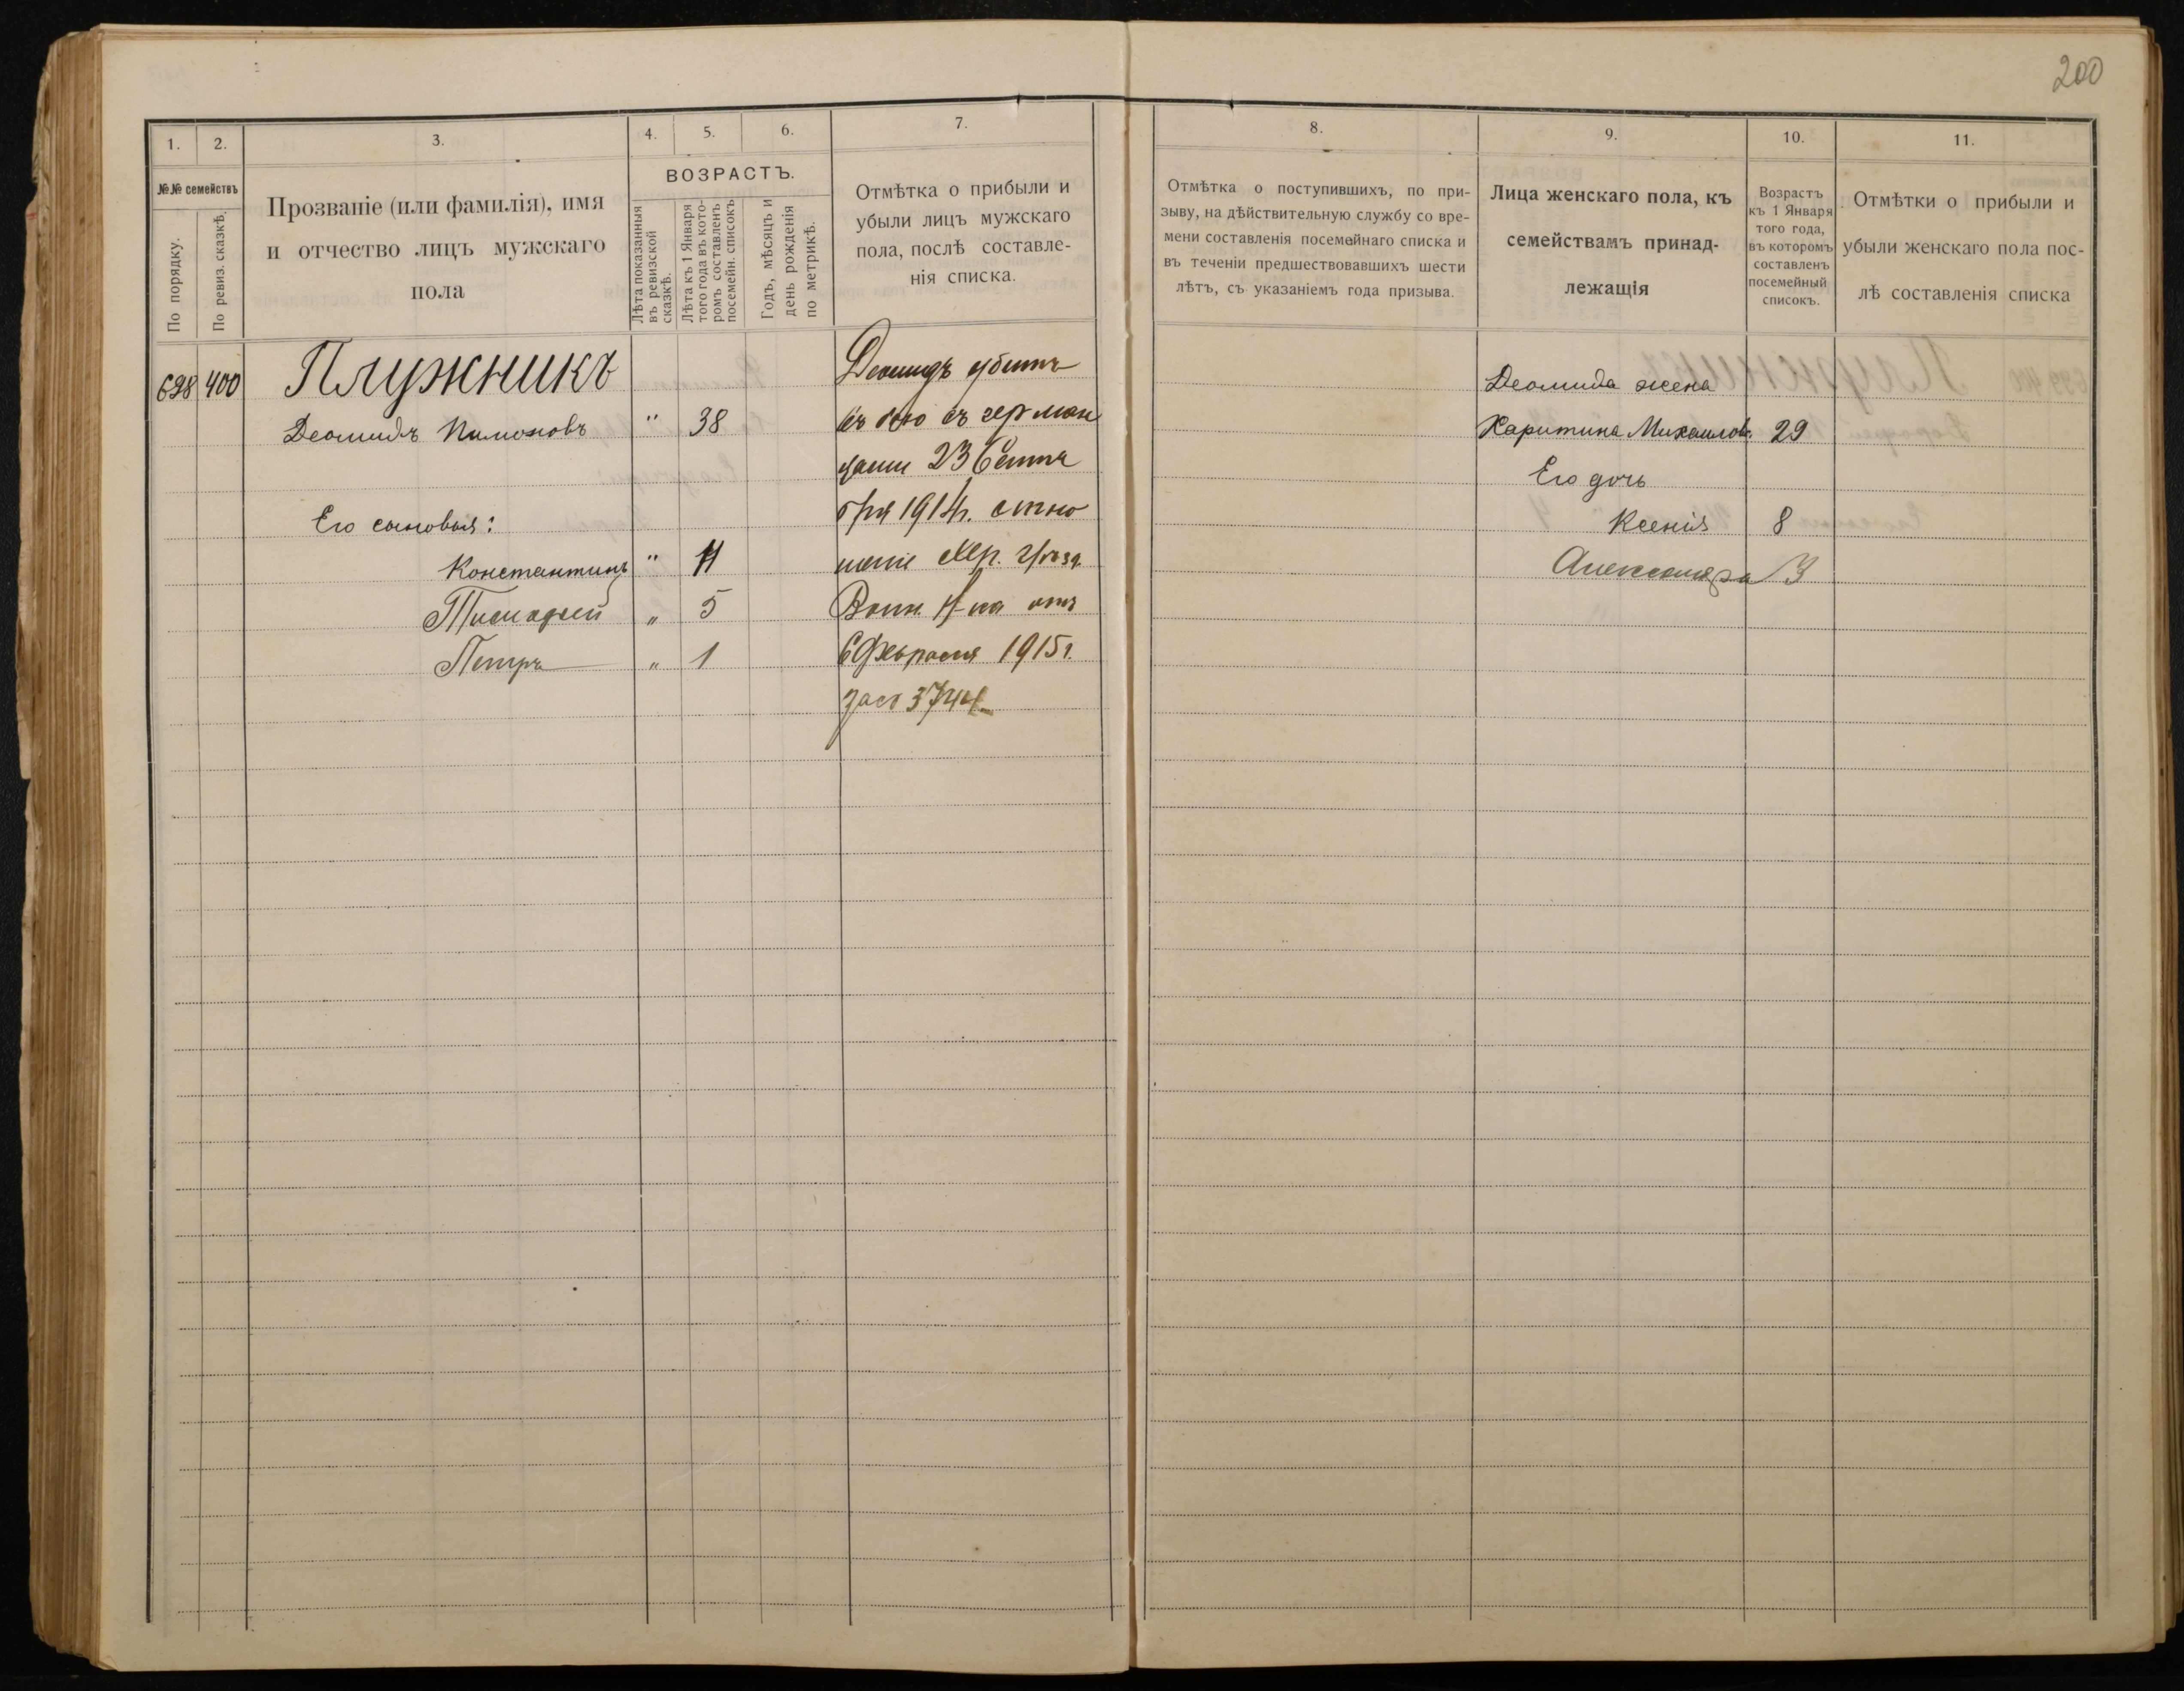 200
1. 2. 3. 4. 5. 6. 7.
№№ семействъ
По порядку.
По ревиз. сказкѣ.
Прозваніе (или фамилія), имя
и отчество лицъ мужскаго
пола
ВОЗРАСТЪ.
Лѣта показанныя
въ ревизской
сказкѣ.
Лѣта къ 1 Января
того года въ кото-
ромъ составленъ
посемейн. списокъ
Годъ, мѣсяцъ и
день рожденія
по метрикѣ.
Отмѣтка о прибыли и
убыли лицъ мужскаго
пола, послѣ составле-
нія списка.
698 400 Плужникъ
Деомидъ Пимоновъ " 38
Его сыновья:
Константинъ " 11
Тимофей " 5
Петръ " 1
Деомидъ убитъ
въ бою съ герман
цами 23 Сентя
бря 1914г. отно
шеніе Хер. уѣзд.
Воин. Н-ка отъ
6 Февраля 1915г.
за № 3744
8. 9. 10. 11.
Отмѣтка о поступившихъ, по при-
зыву, на дѣйствительную службу со вре-
мени составленія посемейнаго списка и
въ теченіи предшествовавшихъ шести
лѣтъ, съ указаніемъ года призыва.
Лица женскаго пола, къ
семействамъ принад-
лежащія
Возрастъ
къ 1 Января
того года,
въ которомъ
составленъ
посемейный
списокъ.
Отмѣтки о прибыли и
убыли женскаго пола пос-
лѣ составленія списка
Деомида жена
Харитина Михаилов. 29
Его дочь
Ксенія 8
Александра 3